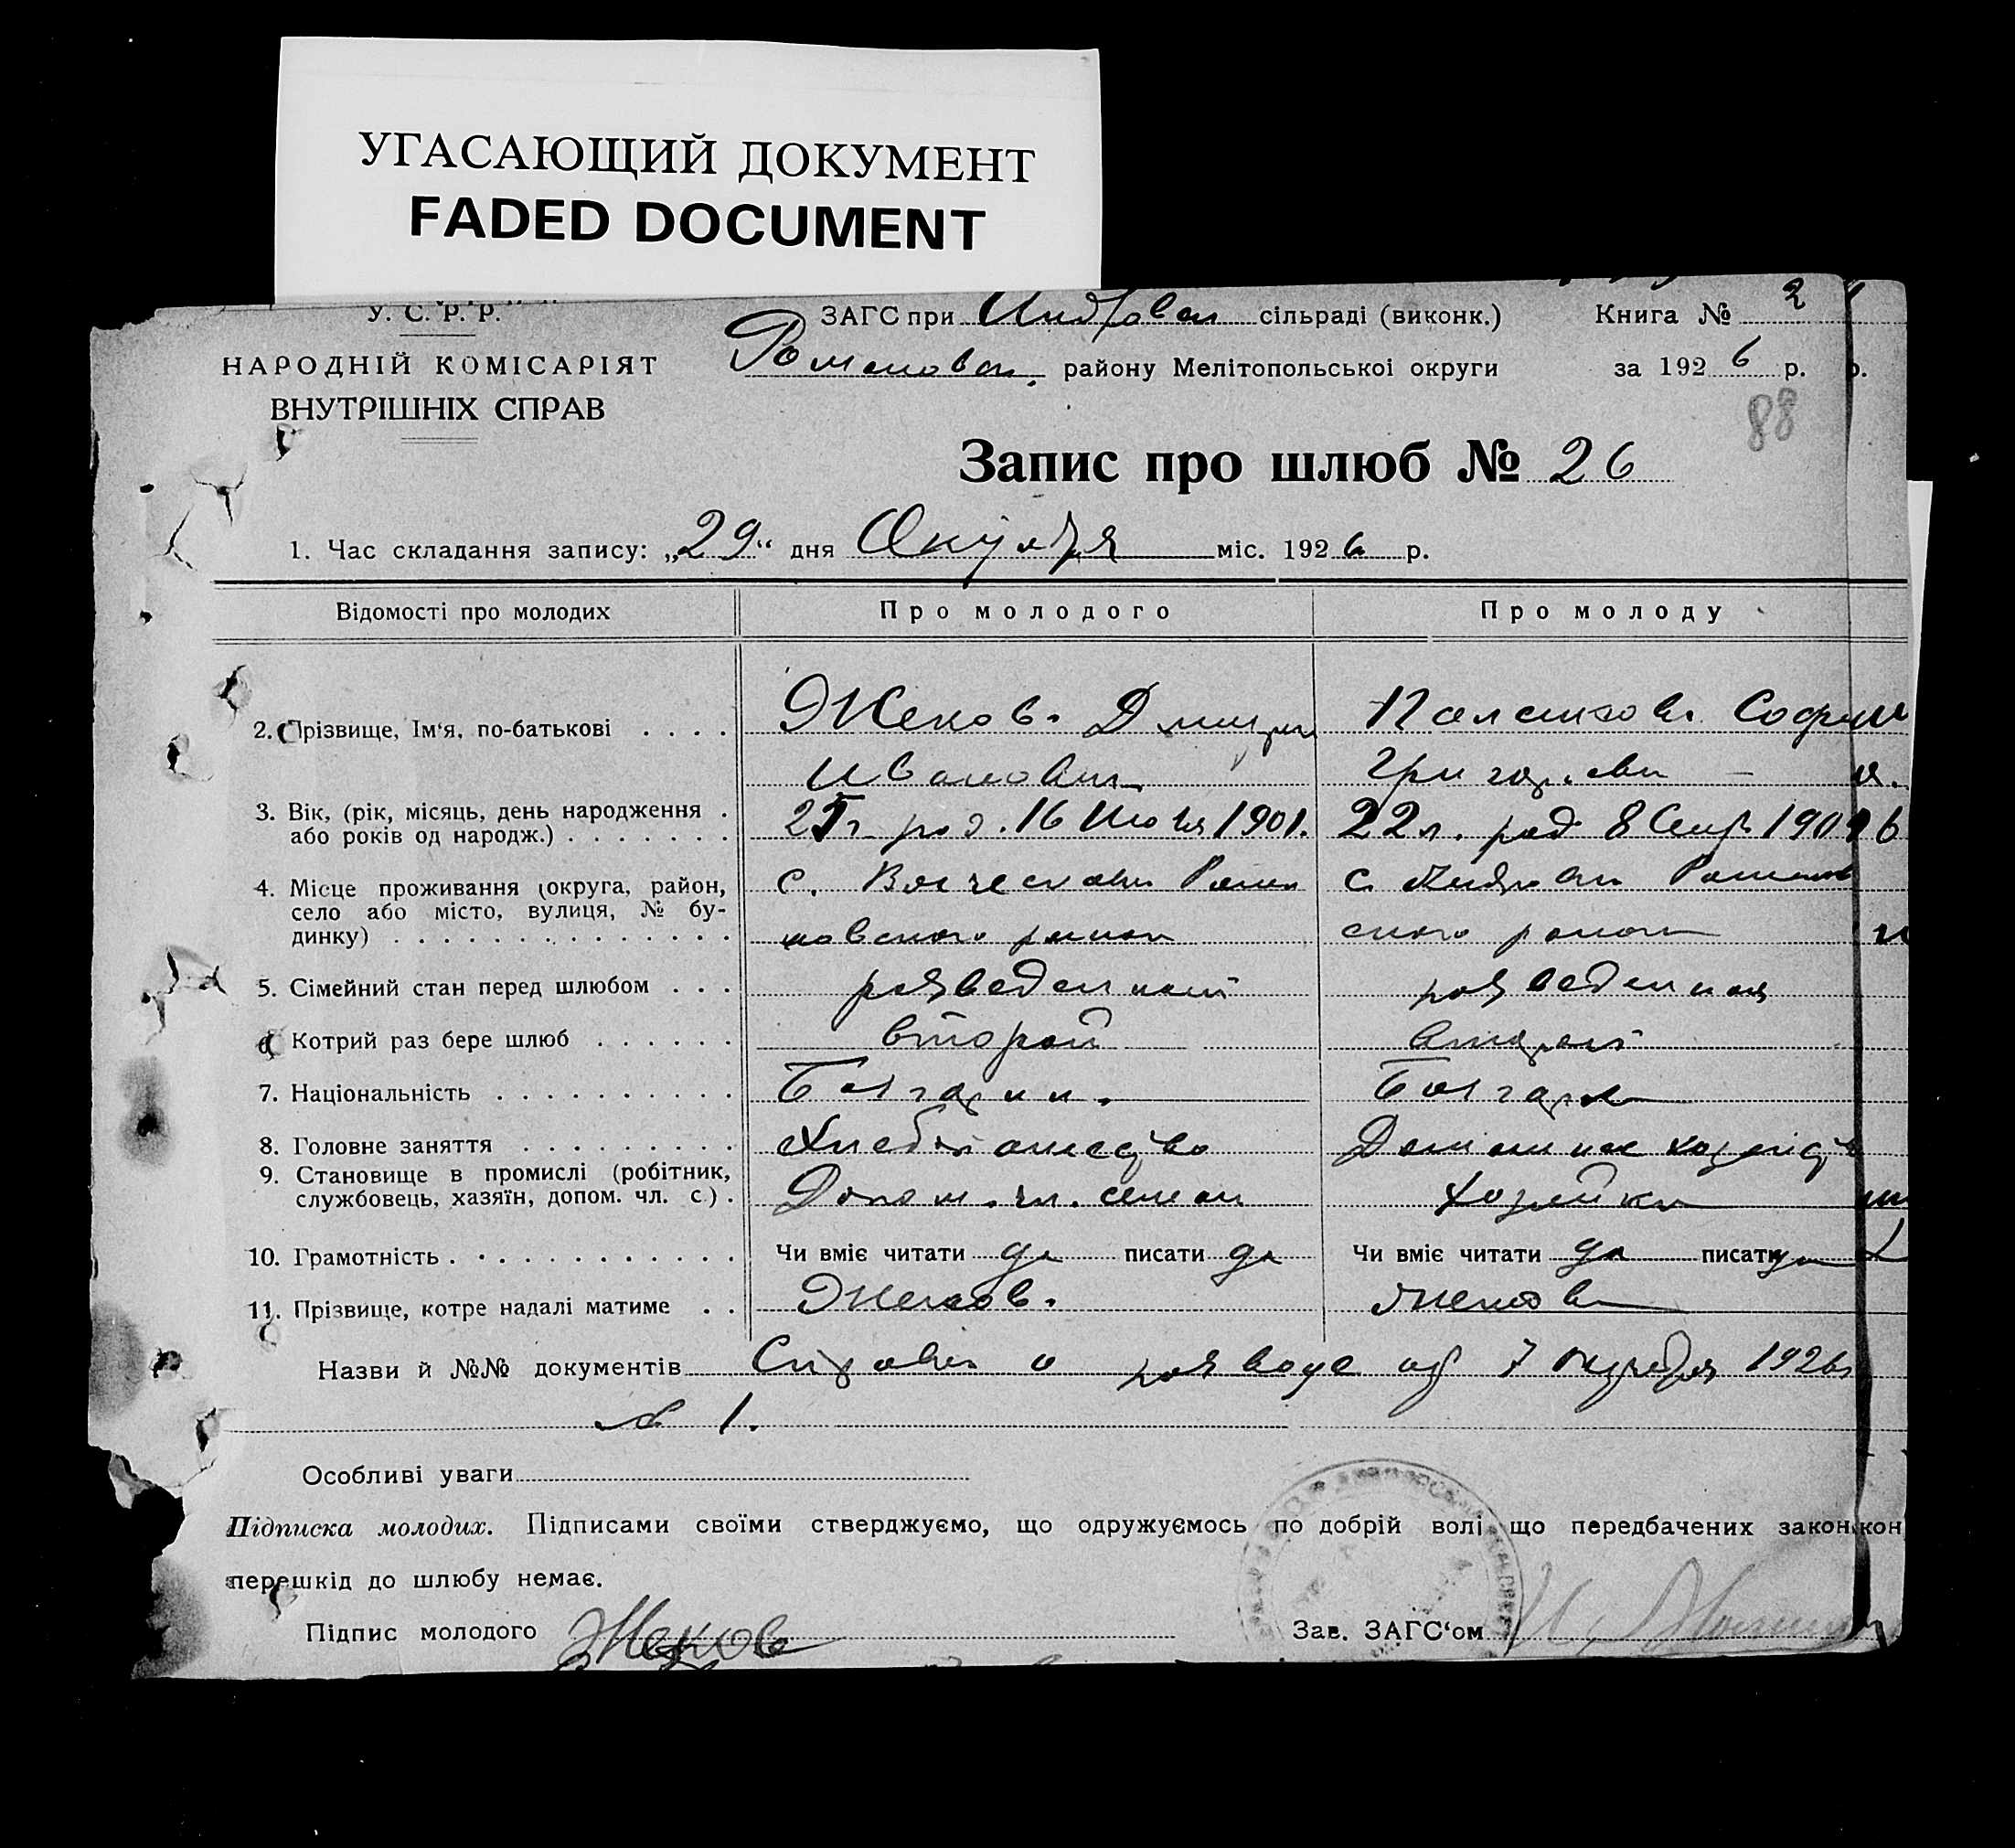 УГАСАЮЩИЙ ДОКУМЕНТ
FADED DOCUMENT
У. С. Р. Р.
НАРОДНІЙ КОМІСАРІЯТ
ВНУТРІШНІХ СПРАВ
ЗАГС при сільраді (виконк.) Книга № 2
району Мелітопольської округи за 1926 р. р.
88
Запис про шлюб № 26
1. Час складання запису: „29“ дня Октября міс. 1926 р.
Відомості про молодих Про молодого Про молоду
2. Прізвище, Ім‘я, по-батькові . . . . Жеков. Дмитрий
Иванович
3. Вік, (рік, місяць, день народження . або років од народж.) . . . . . . . 25 г. род. 16 1901. 22 л. род 8 Сент
4. Місце проживання (округа, район, село або місто, вулиця, № будинку) . . . . . . . . . . . . . . с. с.
новского района ского района
5. Сімейний стан перед шлюбом . . . разведенный разведенная
6. Котрий раз бере шлюб . . . . . . второй второй
7. Національність . . . . . . . . . . Болгарин. Болгарка
8. Головне заняття . . . . . . . . . Хлебопашество Домашнее
9. Становище в промислі (робітник, службовець, хазяїн, допом. чл. с.) . Допом. чл. семьи Хозяйка
10. Грамотність . . . . . . . . . . . . Чи вміє читати да писати да Чи вміє читати да писати да
11. Прізвище, котре надалі матиме . . Жеков. Жекова
Назви й №№ документів Справка о разводе от 7 октября 1926 г
№ 1.
Особливі уваги
Підписка молодих. Підписами своїми стверджуємо, що одружуємось по добрій волі що передбачених закон кон
перешкід до шлюбу немає.
Підпис молодого Жеков Зав. ЗАГС‘ом